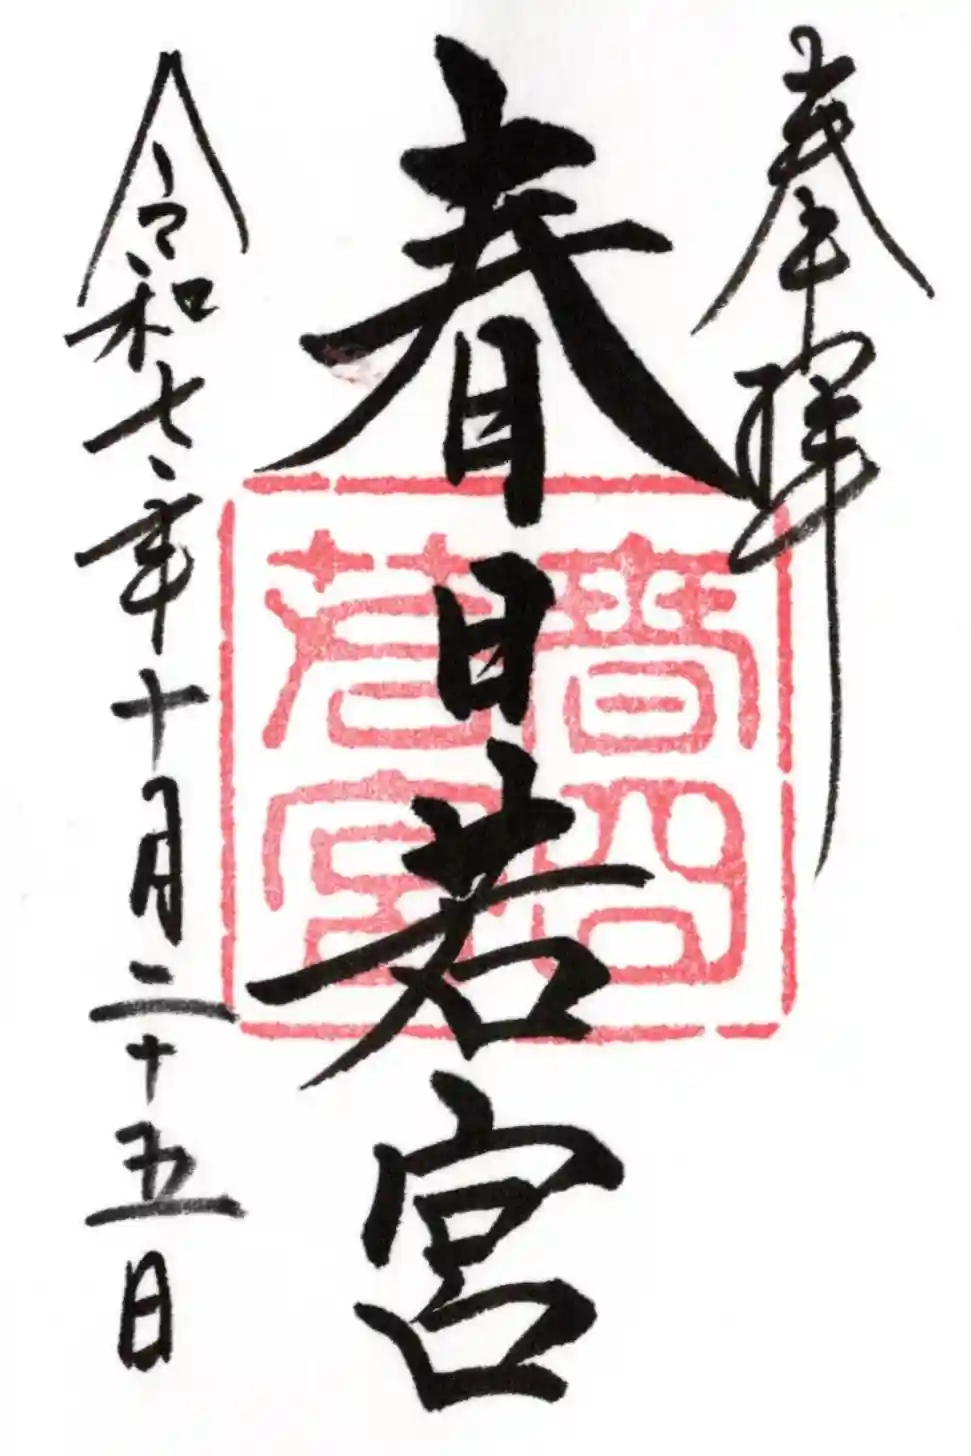 奉拝
春日若宮
若宮
令和七年十月二十五日